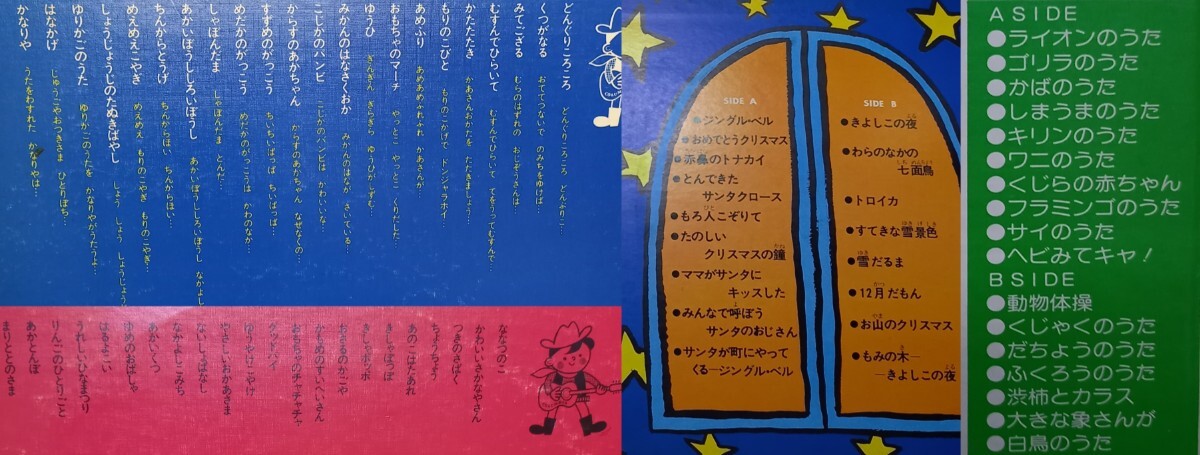 どんぐりころころ　どんぐりころころ　どんぶりこ…
くつがなる　おててつないで　のみちをゆけば…
みてござる　むらのはずれの　おじぞうさんは…
むすんでひらいて　むすんでひらいて　てをうってむすんで…
かたたたき　かあさんおかたを　たたきましょう…
もりのこびと　もりのこかげで　ドンジャラホイ…
あめふり　あめあめふれふれ　かあさんが
おもちゃのマーチ　やっとこ　やっとこ　くりだした…
ゆうひ　ぎんぎん　ぎらぎら　ゆうひがしずむ…
みかんのはなさくおか　みかんのはなが　さいている…
こじかのバンビ　こじかのバンビは　かわいいな…
からすのあかちゃん　からすのあかちゃん　なぜなくの…
すずめのがっこう　ちいちいぱっぱ　ちいぱっぱ…
めだかのがっこう　めだかのがっこうは　かわのなか…
しゃぼんだま　しゃぼんだま　とんだ…
あかいぼうししろいぼうし　あかいぼうししろいぼうし　なかよし
ちんからとうげ　ちんからほい　ちんからほい…
めえめえこやぎ　めえめえ　もりのこやぎ　もりのこやぎ…
しょうじょうじのたぬきばやし　しょう　しょう　しょうじょうじ
ゆりかごのうた　ゆりかごのうたを　かなりやがうたうよ…
はなかげ　じゅうごやおつきさま　ひとりぼち…
かなりや　うたをわすれた　かなりやは…
ななつのこ
かわいいさかなやさん
つきのさばく
ちょうちょう
あのこはたあれ
きしゃぽっぽ
きしゃポッポ
おさるのかごや
かもめのすいへいさん
おもちゃのチャチャチャ
グッドバイ
ゆうやけこやけ
やさしいおかあさま
ないしょばなし
なかよしこみち
あかいくつ
ゆめのおばしゃ
はるよこい
うれしいひなまつり
りんごのひとりごと
あかとんぼ
まりととのさま
SIDE A
●ジングル・ベル
●おめでとうクリスマス
●赤鼻のトナカイ
●とんできた
サンタクロース
●もろ人こぞりて
●たのしい
クリスマスの鐘
●ママがサンタに
キッスした
●みんなで呼ぼう
サンタのおじさん
●サンタが町にやって
くる—ジングル・ベル
SIDE B
●きよしこの夜
●わらのなかの
七面鳥
●トロイカ
●すてきな雪景色
●雪だるま
●12月だもん
●お山のクリスマス
●もみの木—
—きよしこの夜
A SIDE
●ライオンのうた
●ゴリラのうた
●かばのうた
●しまうまのうた
●キリンのうた
●ワニのうた
●くじらの赤ちゃん
●フラミンゴのうた
●サイのうた
●ヘビみてキャ！
B SIDE
●動物体操
●くじゃくのうた
●だちょうのうた
●ふくろうのうた
●渋柿とカラス
●大きな象さんが
●白鳥のうた